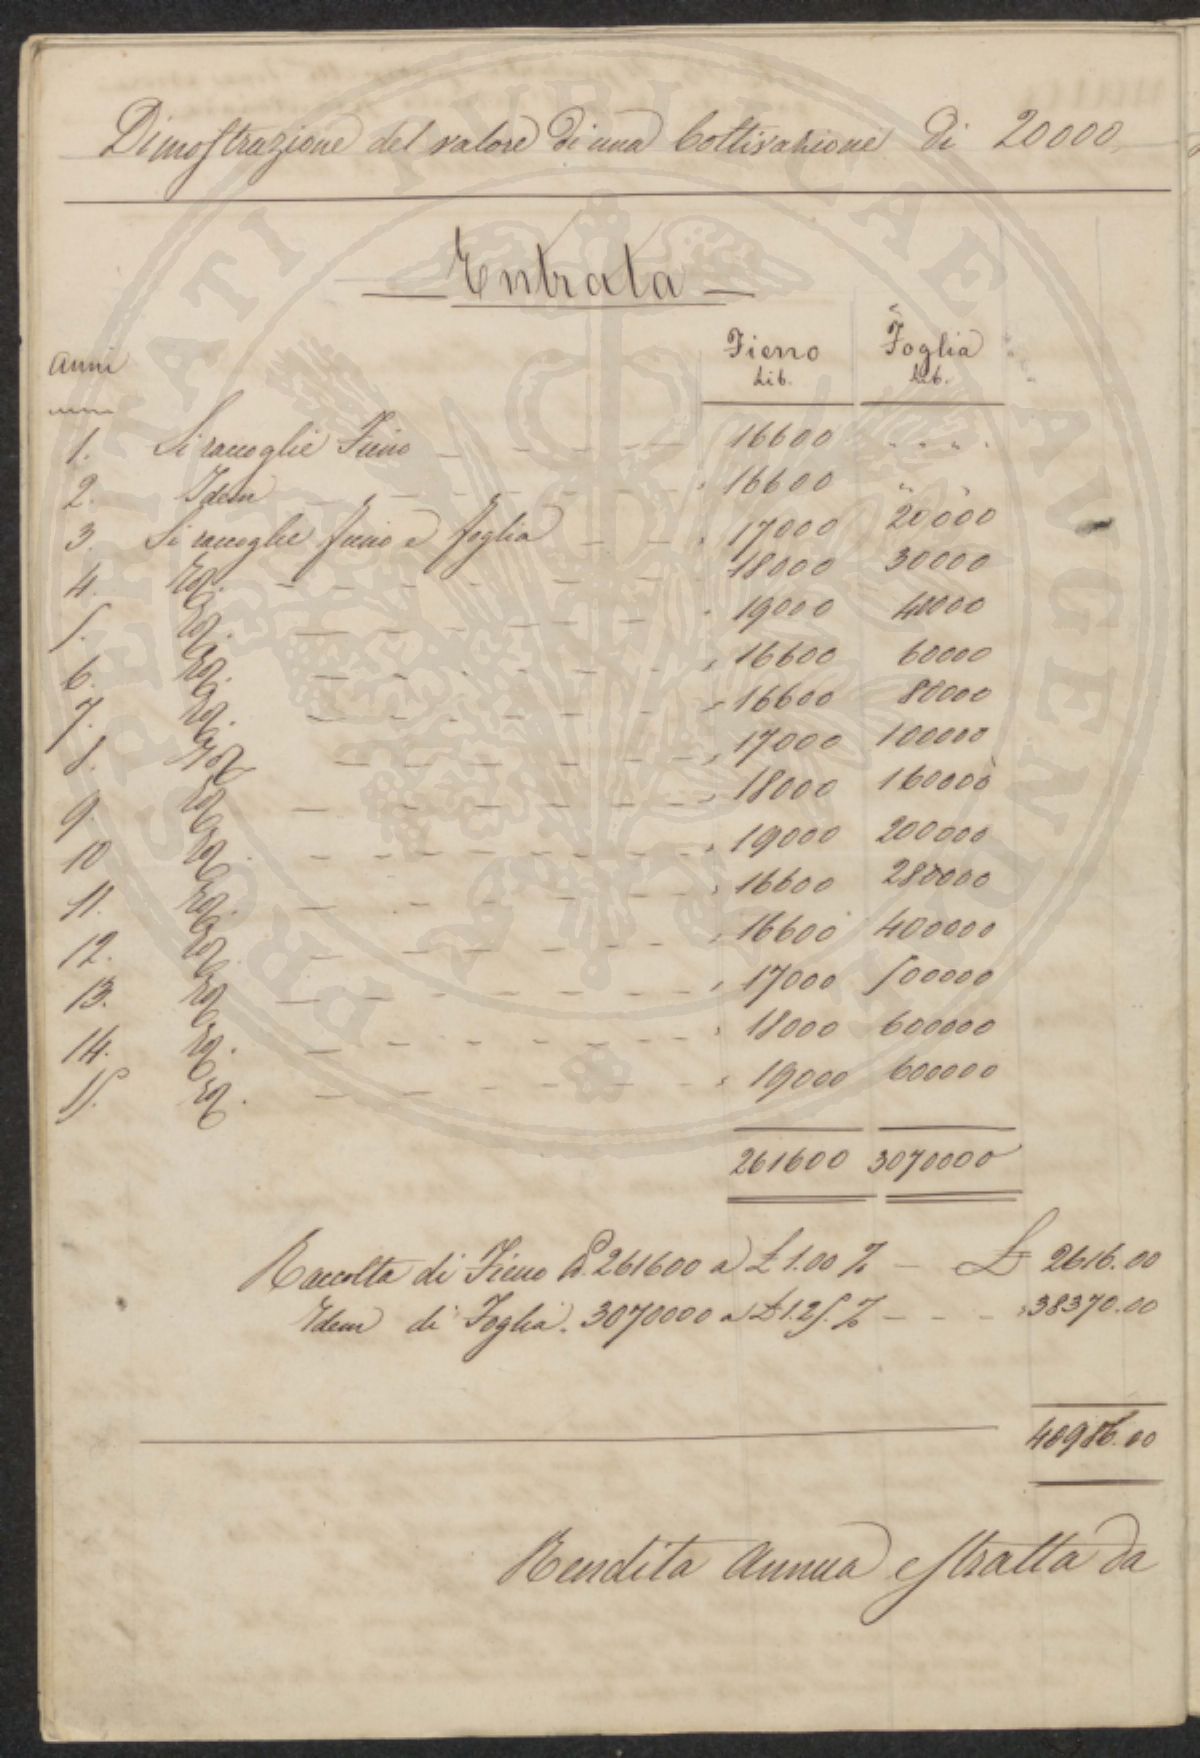 Dimostrazione del valore di una Coltivazione di 20000
Entrata
Anni Fieno Lib. Foglia Lib.
1. Si raccoglie Fieno 16600 " " " "
2. Idem 16600 " "
3. Si raccoglie fieno e foglia 17000 20000
4. Eq. 18000 30000
5. Eq. 19000 40000
6. Eq. 16600 60000
7. Eq. 16600 80000
8. Eq. 17000 100000
9. Eq. 18000 160000
10 Eq. 19000 200000
11. Eq. 16600 280000
12. Eq. 16600 400000
13. Eq. 17000 500000
14. Eq. 18000 600000
15. Eq. 19000 600000
261600 3070000
Raccolta di Fieno L. 261600 a £ 1.00 % £ 2616.00
Idem di Foglia. 3070000 a £ 1.25. % 38370.00
40986.00
Rendita Annua estratta da
PROSPERITATI PUBLICAE AVGENDAE